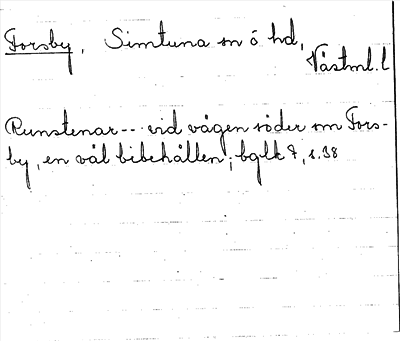 Forsby, Simtuna sn o hd,
Västml. l
Runstenar -- vid vägen söder om Fors-
by, en väl bibehållen; bglk 7, s. 38